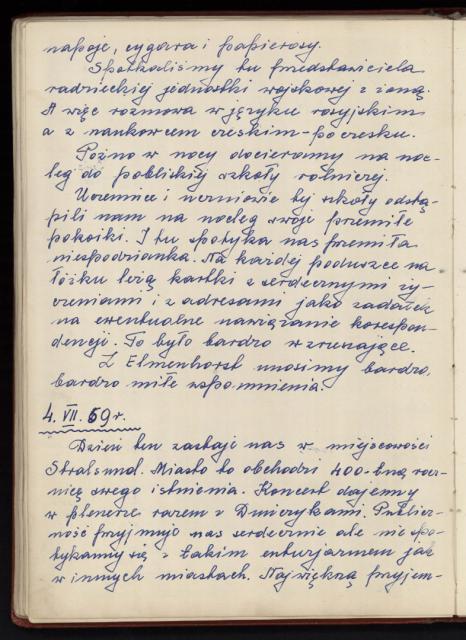 napoje, cygara i papierosy.
Spotkaliśmy tu przedstawiciela
radzieckiej jednostki wojskowej z żoną.
A więc rozmowa w języku rosyjskim
a z naukowcem czeskim - po czesku.
Późno w nocy docieramy na noc-
leg do pobliskiej szkoły rolniczej.
Uczennice i uczniowie tej szkoły odstą-
pili nam na nocleg swoje przemiłe
pokoiki. I tu spotyka nas przemiła
niespodzianka. Na każdej poduszce na
łóżku leżą kartki z serdecznymi ży-
czeniami i z adresami jako zadatek
na ewentualne nawiązanie korespon-
dencji. To było bardzo wzruszające.
Z Elmenhorst unosimy bardzo,
bardzo miłe wspomnienia.
4. VII. 69 r.
Dzień ten zastaje nas w miejscowości
Stralsund. Miasto to obchodzi 400-tną rocz-
nicę swego istnienia. Koncert dajemy
w plenerze razem z Duńczykami. Publicz-
ność przyjmuje nas serdecznie ale nie spo-
tykamy się z takim entuzjazmem jak
w innych miastach. Największą przyjem-